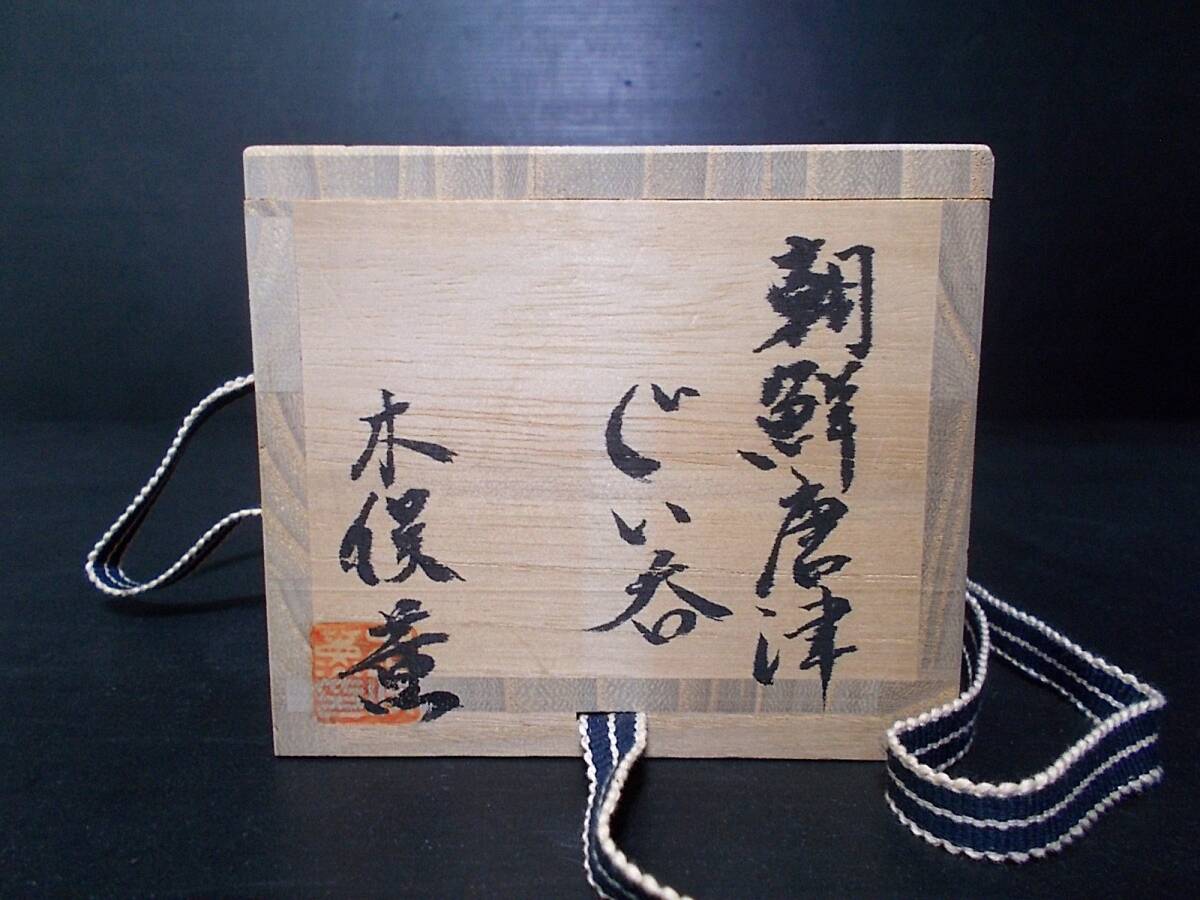 朝鮮唐津
ぐい呑
木俣薫